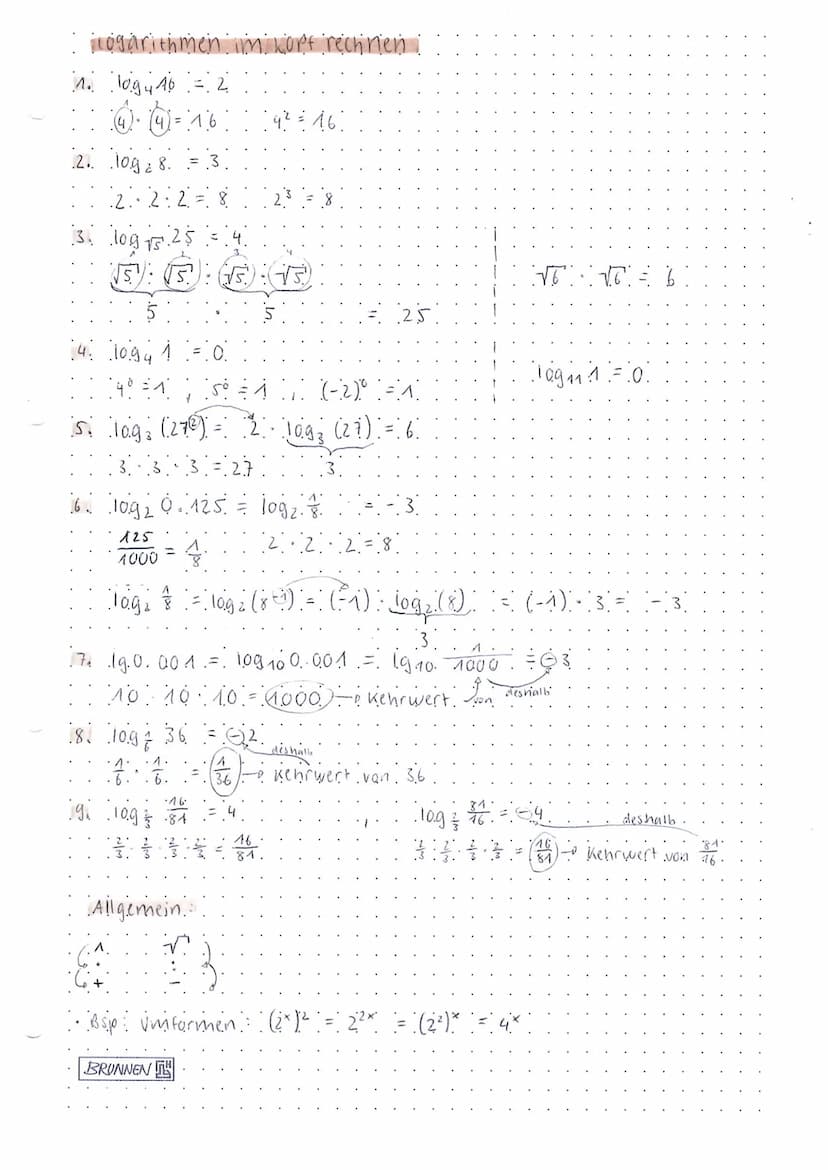 Logarithmen im Kopf rechnen
1. log₄16 = 2
④ · ④ = 16    4² = 16
2. log₂8 = 3
2 · 2 · 2 = 8    2³ = 8
3. log_√5 25 = 4
√5 · √5 · √5 · √5    √6 · √6 = 6
5 · 5 = 25
4. log₄1 = 0    log₁₁1 = 0
4⁰ = 1 , 5⁰ = 1 , (-2)⁰ = 1
5. log₃(27²) = 2 · log₃(27) = 6
3 · 3 · 3 = 27    3
6. log₂0.125 = log₂ 1/8 = -3
125/1000 = 1/8    2 · 2 · 2 = 8
log₂ 1/8 = log₂(8⁻¹) = (-1) · log₂(8) = (-1) · 3 = -3
3
7. lg 0.001 = log₁₀0.001 = lg₁₀ 1/1000 = -3
10 · 10 · 10 = 1000 → Kehrwert von deshalb
8. log_1/6 36 = -2
deshalb
1/6 · 1/6 = 1/36 → Kehrwert von 36
9. log_2/3 16/81 = 4 , log_2/3 81/16 = -4 deshalb
2/3 · 2/3 · 2/3 · 2/3 = 16/81    2/3 · 2/3 · 2/3 · 2/3 = 16/81 → Kehrwert von 81/16
Allgemein:
^    √
·    :
+    -
· Bsp: Umformen: (2ˣ)² = 2²ˣ = (2²)ˣ = 4ˣ
BRUNNEN